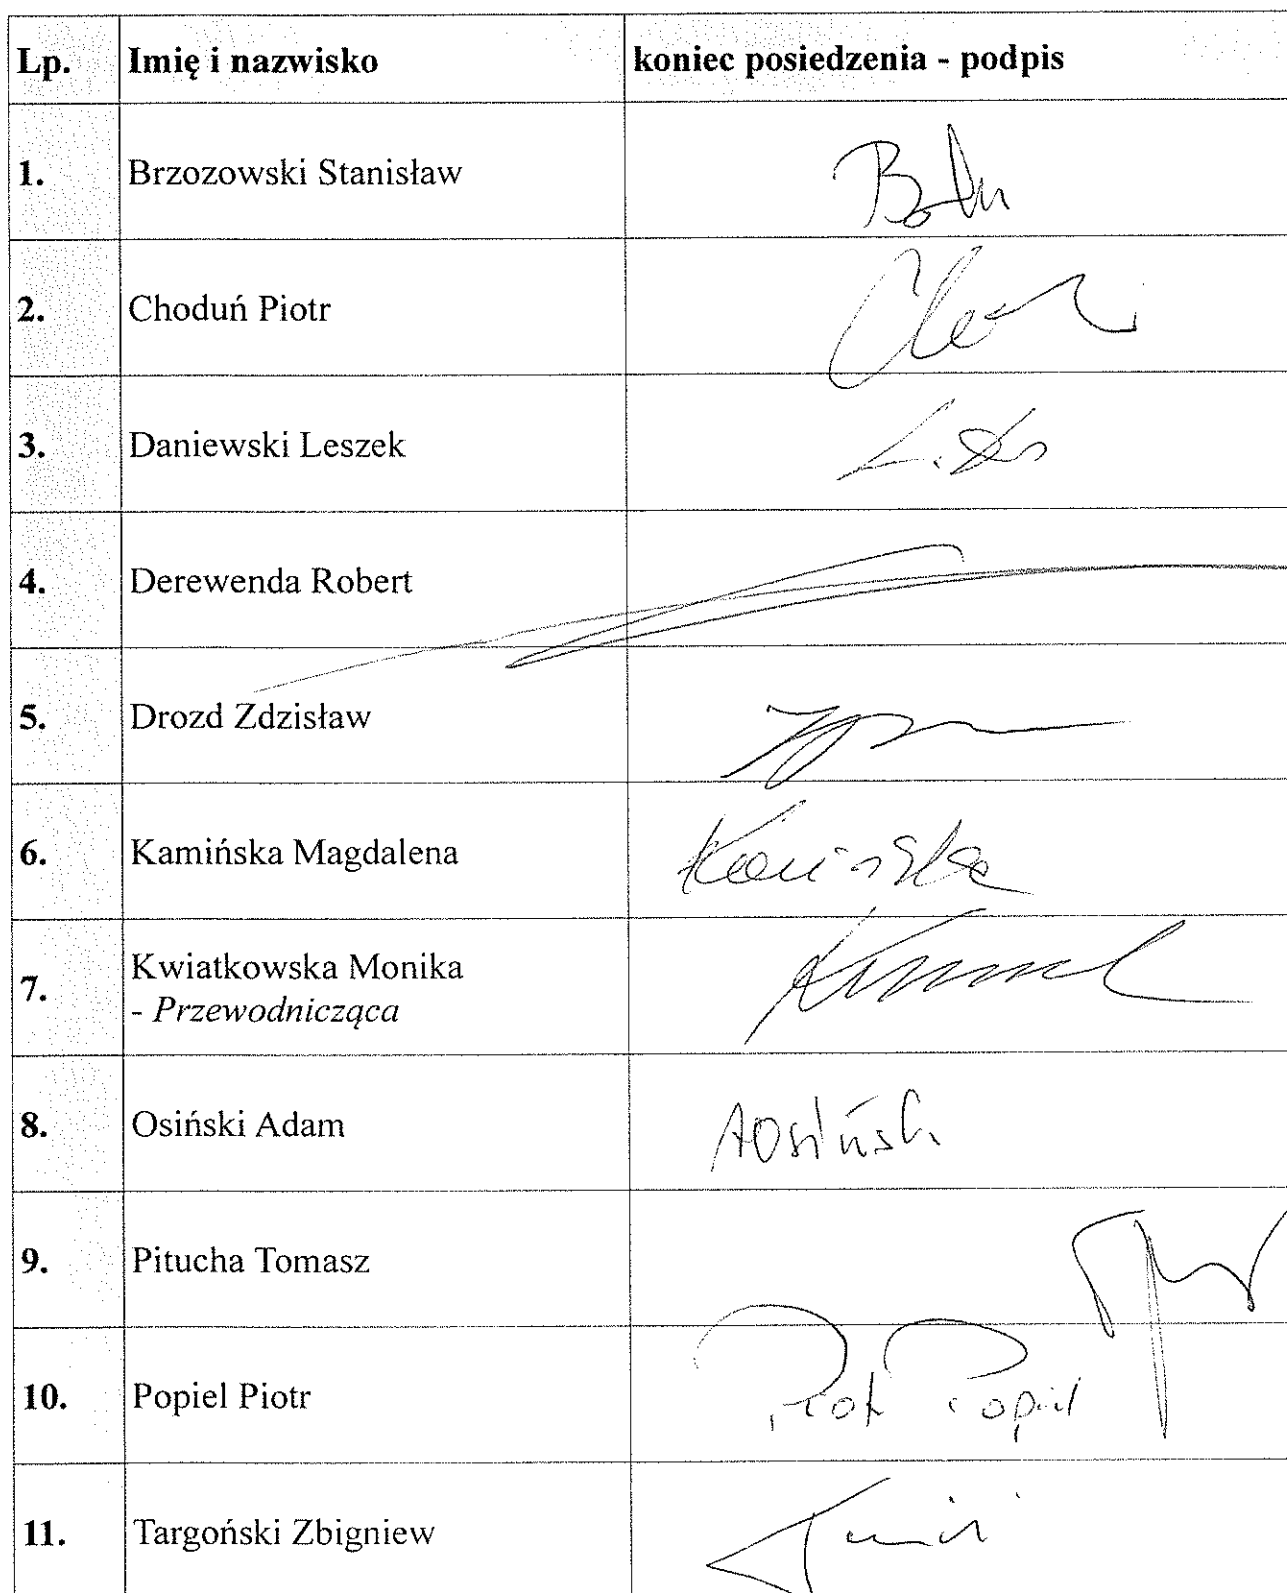 Lp. Imię i nazwisko koniec posiedzenia - podpis
1. Brzozowski Stanisław
2. Choduń Piotr
3. Daniewski Leszek
4. Derewenda Robert
5. Drozd Zdzisław
6. Kamińska Magdalena Kamińska
7. Kwiatkowska Monika
- Przewodnicząca
8. Osiński Adam AOsiński
9. Pitucha Tomasz
10. Popiel Piotr Piotr Popiel
11. Targoński Zbigniew